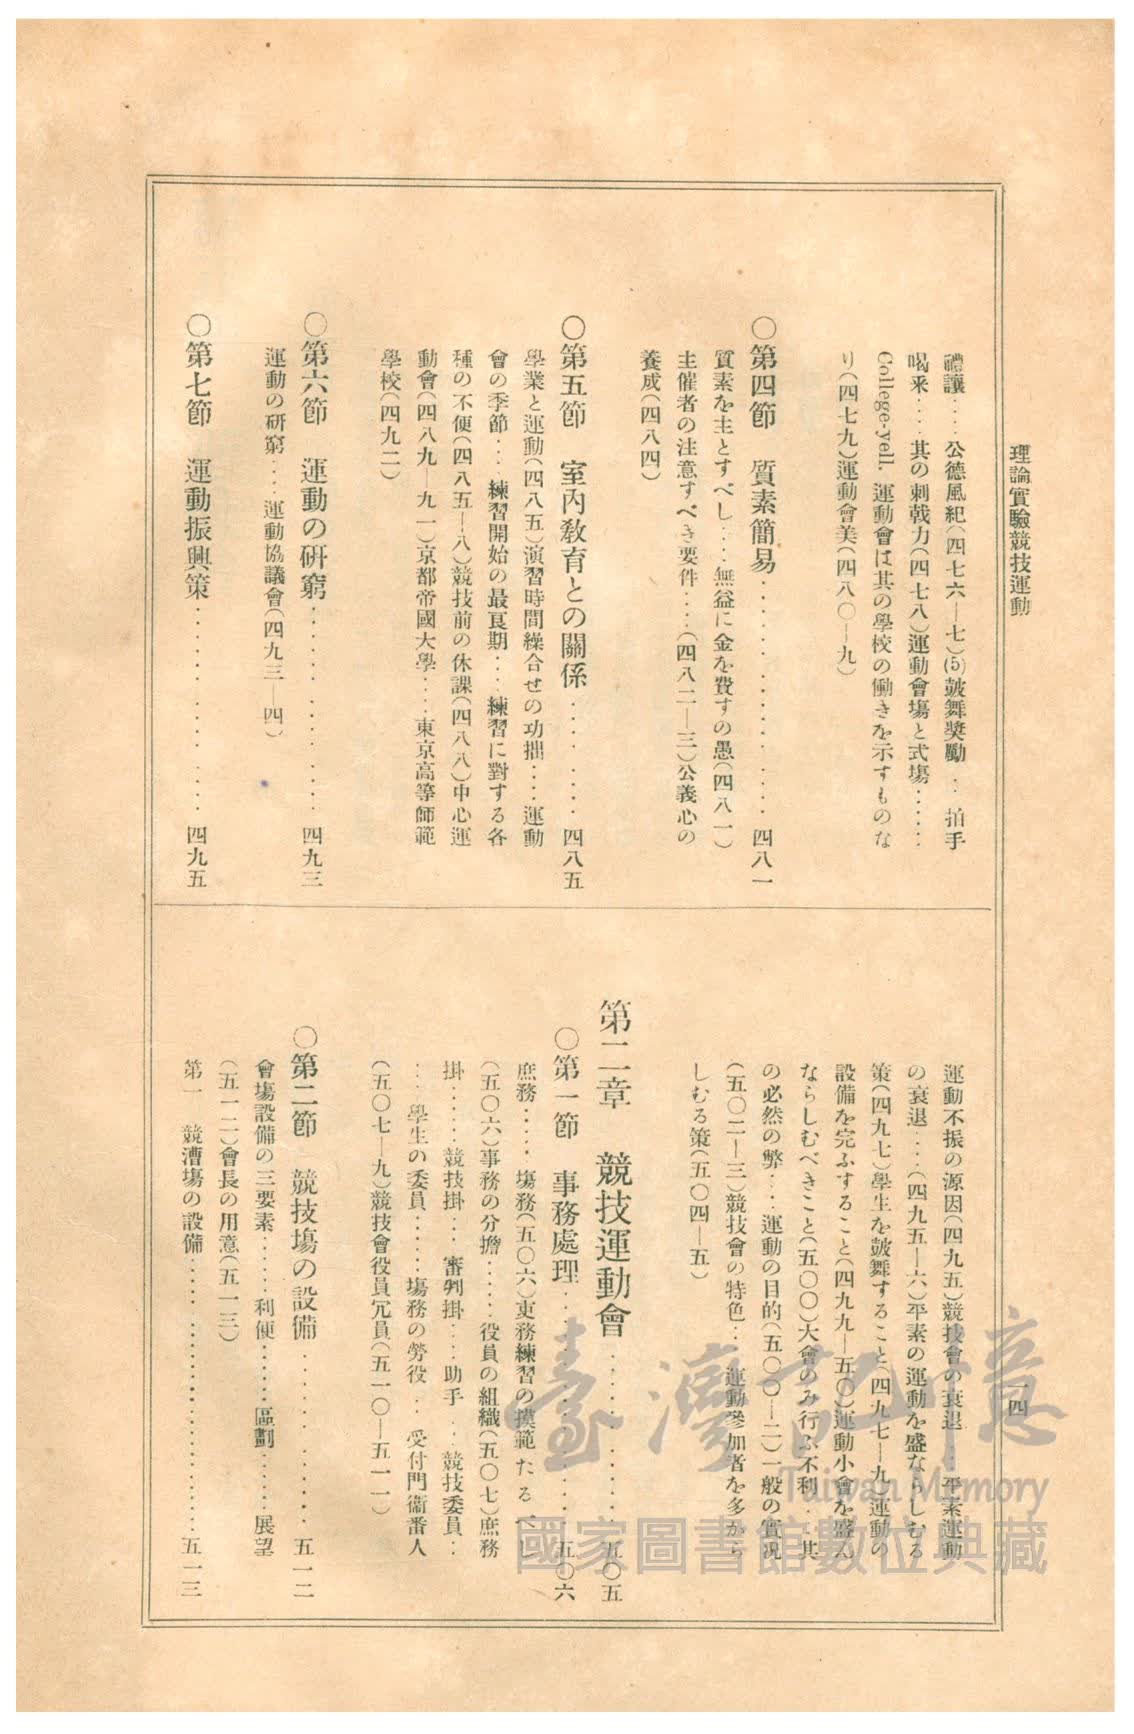 理論實驗競技運動
一四
禮讓‥‥公德風紀(四七六―七)(5)皷舞奬勵‥拍手
喝采‥‥其の刺戟力(四七八)運動會塲と式塲‥‥‥
College-yell. 運動會は其の學校の働きを示すものな
り(四七九)運動會美(四八〇―九)
〇第四節 質素簡易‥‥‥‥‥‥‥四八一
質素を主とすべし‥‥無益に金を費すの愚(四八一)
主催者の注意すべき要件‥‥(四八二―三)公義心の
養成(四八四)
〇第五節 室內敎育との關係‥‥‥‥四八五
學業と運動(四八五)演習時間繰合せの功拙‥‥運動
會の季節‥‥練習開始の最良期‥‥練習に對する各
種の不便(四八五―八)競技前の休課(四八八)中心運
動會(四八九―九一)京都帝國大學‥‥東京高等師範
學校(四九二)
〇第六節 運動の硏窮‥‥‥‥‥‥‥四九三
運動の硏窮‥‥運動協議會(四九三―四)
〇第七節 運動振興策‥‥‥‥‥‥‥四九五
運動不振の源因(四九五)競技會の衰退‥平素運動
の衰退‥‥(四九五―六)平素の運動を盛ならしむる
策(四九七)學生を皷舞すること(四九七―九)運動の
設備を完ふすること(四九九―五〇)運動小會を盛ん
ならしむべきこと(五〇〇)大會のみ行ふ不利‥其
の必然の弊‥‥運動の目的(五〇〇―二)一般の實況
(五〇二―三)競技會の特色‥運動參加者を多から
しむる策(五〇四―五)
第二章 競技運動會‥‥‥‥‥‥‥五〇五
〇第一節 事務處理‥‥‥‥‥‥‥五〇六
庶務‥‥塲務(五〇六)吏務練習の摸範たる
(五〇六)事務の分擔‥‥‥役員の組織(五〇七)庶務
掛‥‥‥競技掛‥審判掛‥‥助手‥‥競技委員‥
‥‥學生の委員‥‥‥塲務の勞役‥受付門衞番人
(五〇七―九)競技會役員冗員(五一〇―五一一)
〇第二節 競技塲の設備‥‥‥‥‥五一二
會塲設備の三要素‥‥‥利便‥‥‥區劃‥‥‥展望
(五一二)會長の用意(五一三)
第一 競漕塲の設備‥‥‥‥‥‥‥‥五一三
臺灣記憶
Taiwan Memory
國家圖書館數位典藏